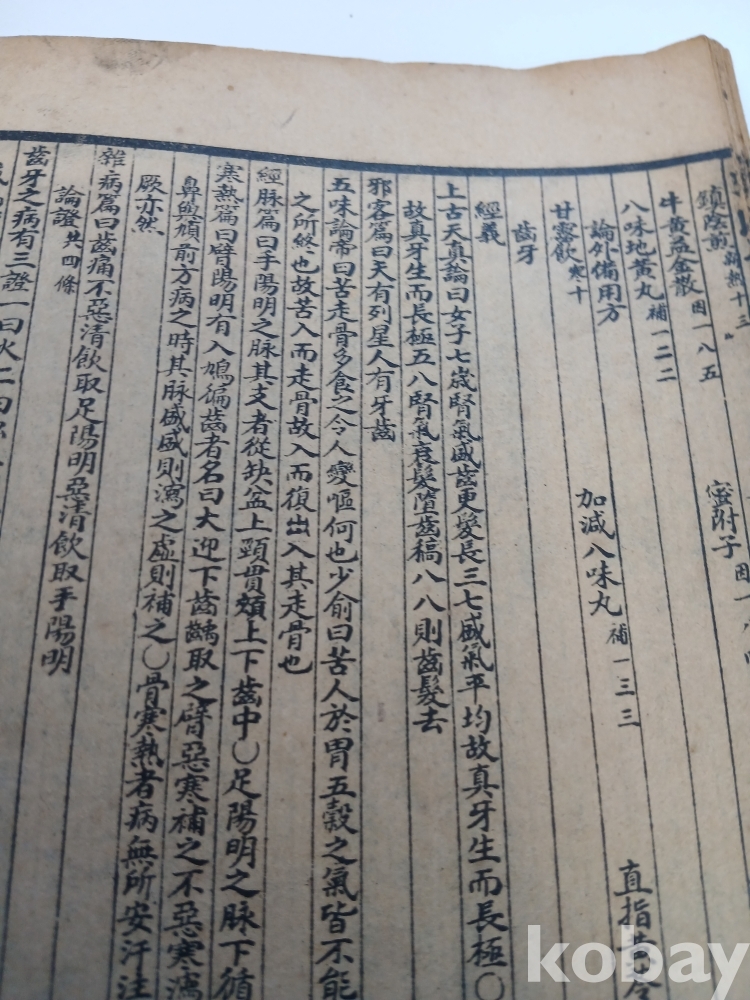 鎮陰煎 新熱十三
牛黃益金散 因一八五 蜜附子
八味地黃丸 補一二二
論外備用方 加減八味丸 補一三三 直指
甘露飲 寒十
齒牙
經義
上古天真論曰女子七歲腎氣盛齒更髮長三七盛氣平均故真牙生而長極〇
故真牙生而長極五八腎氣衰髮墮齒稿八八則齒髮去
邪客篇曰天有列星人有牙齒
五味論帝曰苦走骨多食之令人變嘔何也少俞曰苦人於胃五穀之氣皆不能
之所終也故苦入而走骨故入而復出入其走骨也
經脉篇曰手陽明之脉其支者從缺盆上頸貫頰上下齒中〇足陽明之脉下循
寒熱篇曰臂陽明有入鳩徧齒者名曰大迎下齒齲取之臂惡寒補之不惡寒瀉
鼻與頄前方病之時其脉盛盛則瀉之虛則補之〇骨寒熱者病無所安汗注
厥亦然
雜病篇曰齒痛不惡清飲取足陽明惡清飲取手陽明
論證 共四條
齒牙之病有三證一曰火二曰
kobay